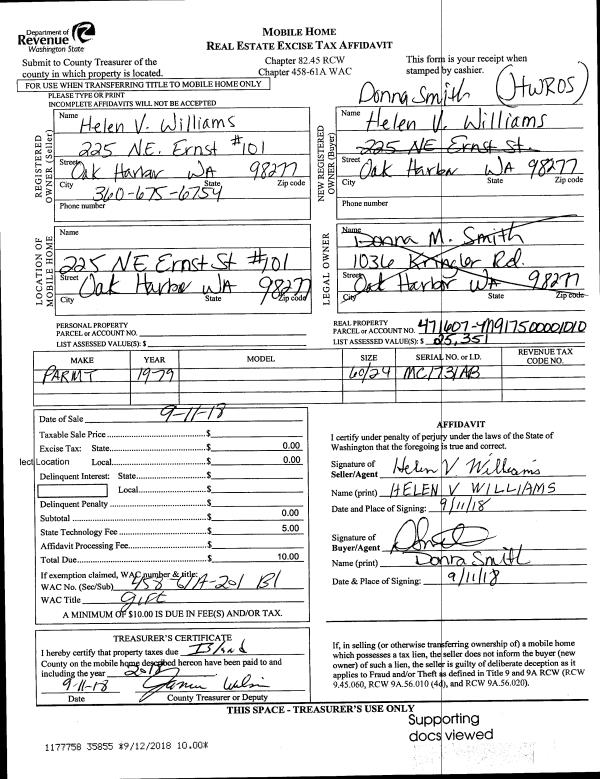 Department of
Revenue
Washington State
MOBILE HOME
REAL ESTATE EXCISE TAX AFFIDAVIT
Submit to County Treasurer of the
county in which property is located.
Chapter 82.45 RCW
Chapter 458-61A WAC
This form is your receipt when
stamped by cashier.
FOR USE WHEN TRANSFERRING TITLE TO MOBILE HOME ONLY
PLEASE TYPE OR PRINT
INCOMPLETE AFFIDAVITS WILL NOT BE ACCEPTED
Donna Smith (JTWROS)
REGISTERED
OWNER (Seller)
Name Helen V. Williams
225 NE. Ernst #101
Street Oak Harbor WA 98277
City State Zip code
360-675-6754
Phone number
NEW REGISTERED
OWNER (Buyer)
Name Helen V. Williams
225 NE Ernst St.
Street Oak Harbor WA 98277
City State Zip code
Phone number
LOCATION OF
MOBILE HOME
Name
225 NE Ernst St #101
Street Oak Harbor WA 98277
City State Zip code
LEGAL OWNER
Name Donna M. Smith
1036 Rd.
Street Oak Harbor WA 98277
City State Zip code
PERSONAL PROPERTY
PARCEL or ACCOUNT NO.
LIST ASSESSED VALUE(S): $
REAL PROPERTY
PARCEL or ACCOUNT NO.
LIST ASSESSED VALUE(S): $ 25,351
MAKE YEAR MODEL SIZE SERIAL NO. or I.D. REVENUE TAX
CODE NO.
PARMT 1979 60/24 MC1731AB
Date of Sale 9-11-18
Taxable Sale Price $
Excise Tax: State $ 0.00
lect Location Local $ 0.00
Delinquent Interest: State $
Local $
Delinquent Penalty $
Subtotal $ 0.00
State Technology Fee $ 5.00
Affidavit Processing Fee $
Total Due $ 10.00
If exemption claimed, WAC number & title:
WAC No. (Sec/Sub) 458 61A-201 B1
WAC Title Gift
A MINIMUM OF $10.00 IS DUE IN FEE(S) AND/OR TAX.
AFFIDAVIT
I certify under penalty of perjury under the laws of the State of
Washington that the foregoing is true and correct.
Signature of
Seller/Agent Helen V Williams
Name (print) HELEN V WILLIAMS
Date and Place of Signing: 9/11/18
Signature of
Buyer/Agent
Name (print) Donna Smith
Date & Place of Signing: 9/11/18
TREASURER'S CERTIFICATE
I hereby certify that property taxes due Island
County on the mobile home described hereon have been paid to and
including the year 2018
9-11-18
Date County Treasurer or Deputy
If, in selling (or otherwise transferring ownership of) a mobile home
which possesses a tax lien, the seller does not inform the buyer (new
owner) of such a lien, the seller is guilty of deliberate deception as it
applies to Fraud and/or Theft as defined in Title 9 and 9A RCW (RCW
9.45.060, RCW 9A.56.010 (4d), and RCW 9A.56.020).
THIS SPACE - TREASURER'S USE ONLY
Supporting
docs viewed
1177758 35855 *9/12/2018 10.00*